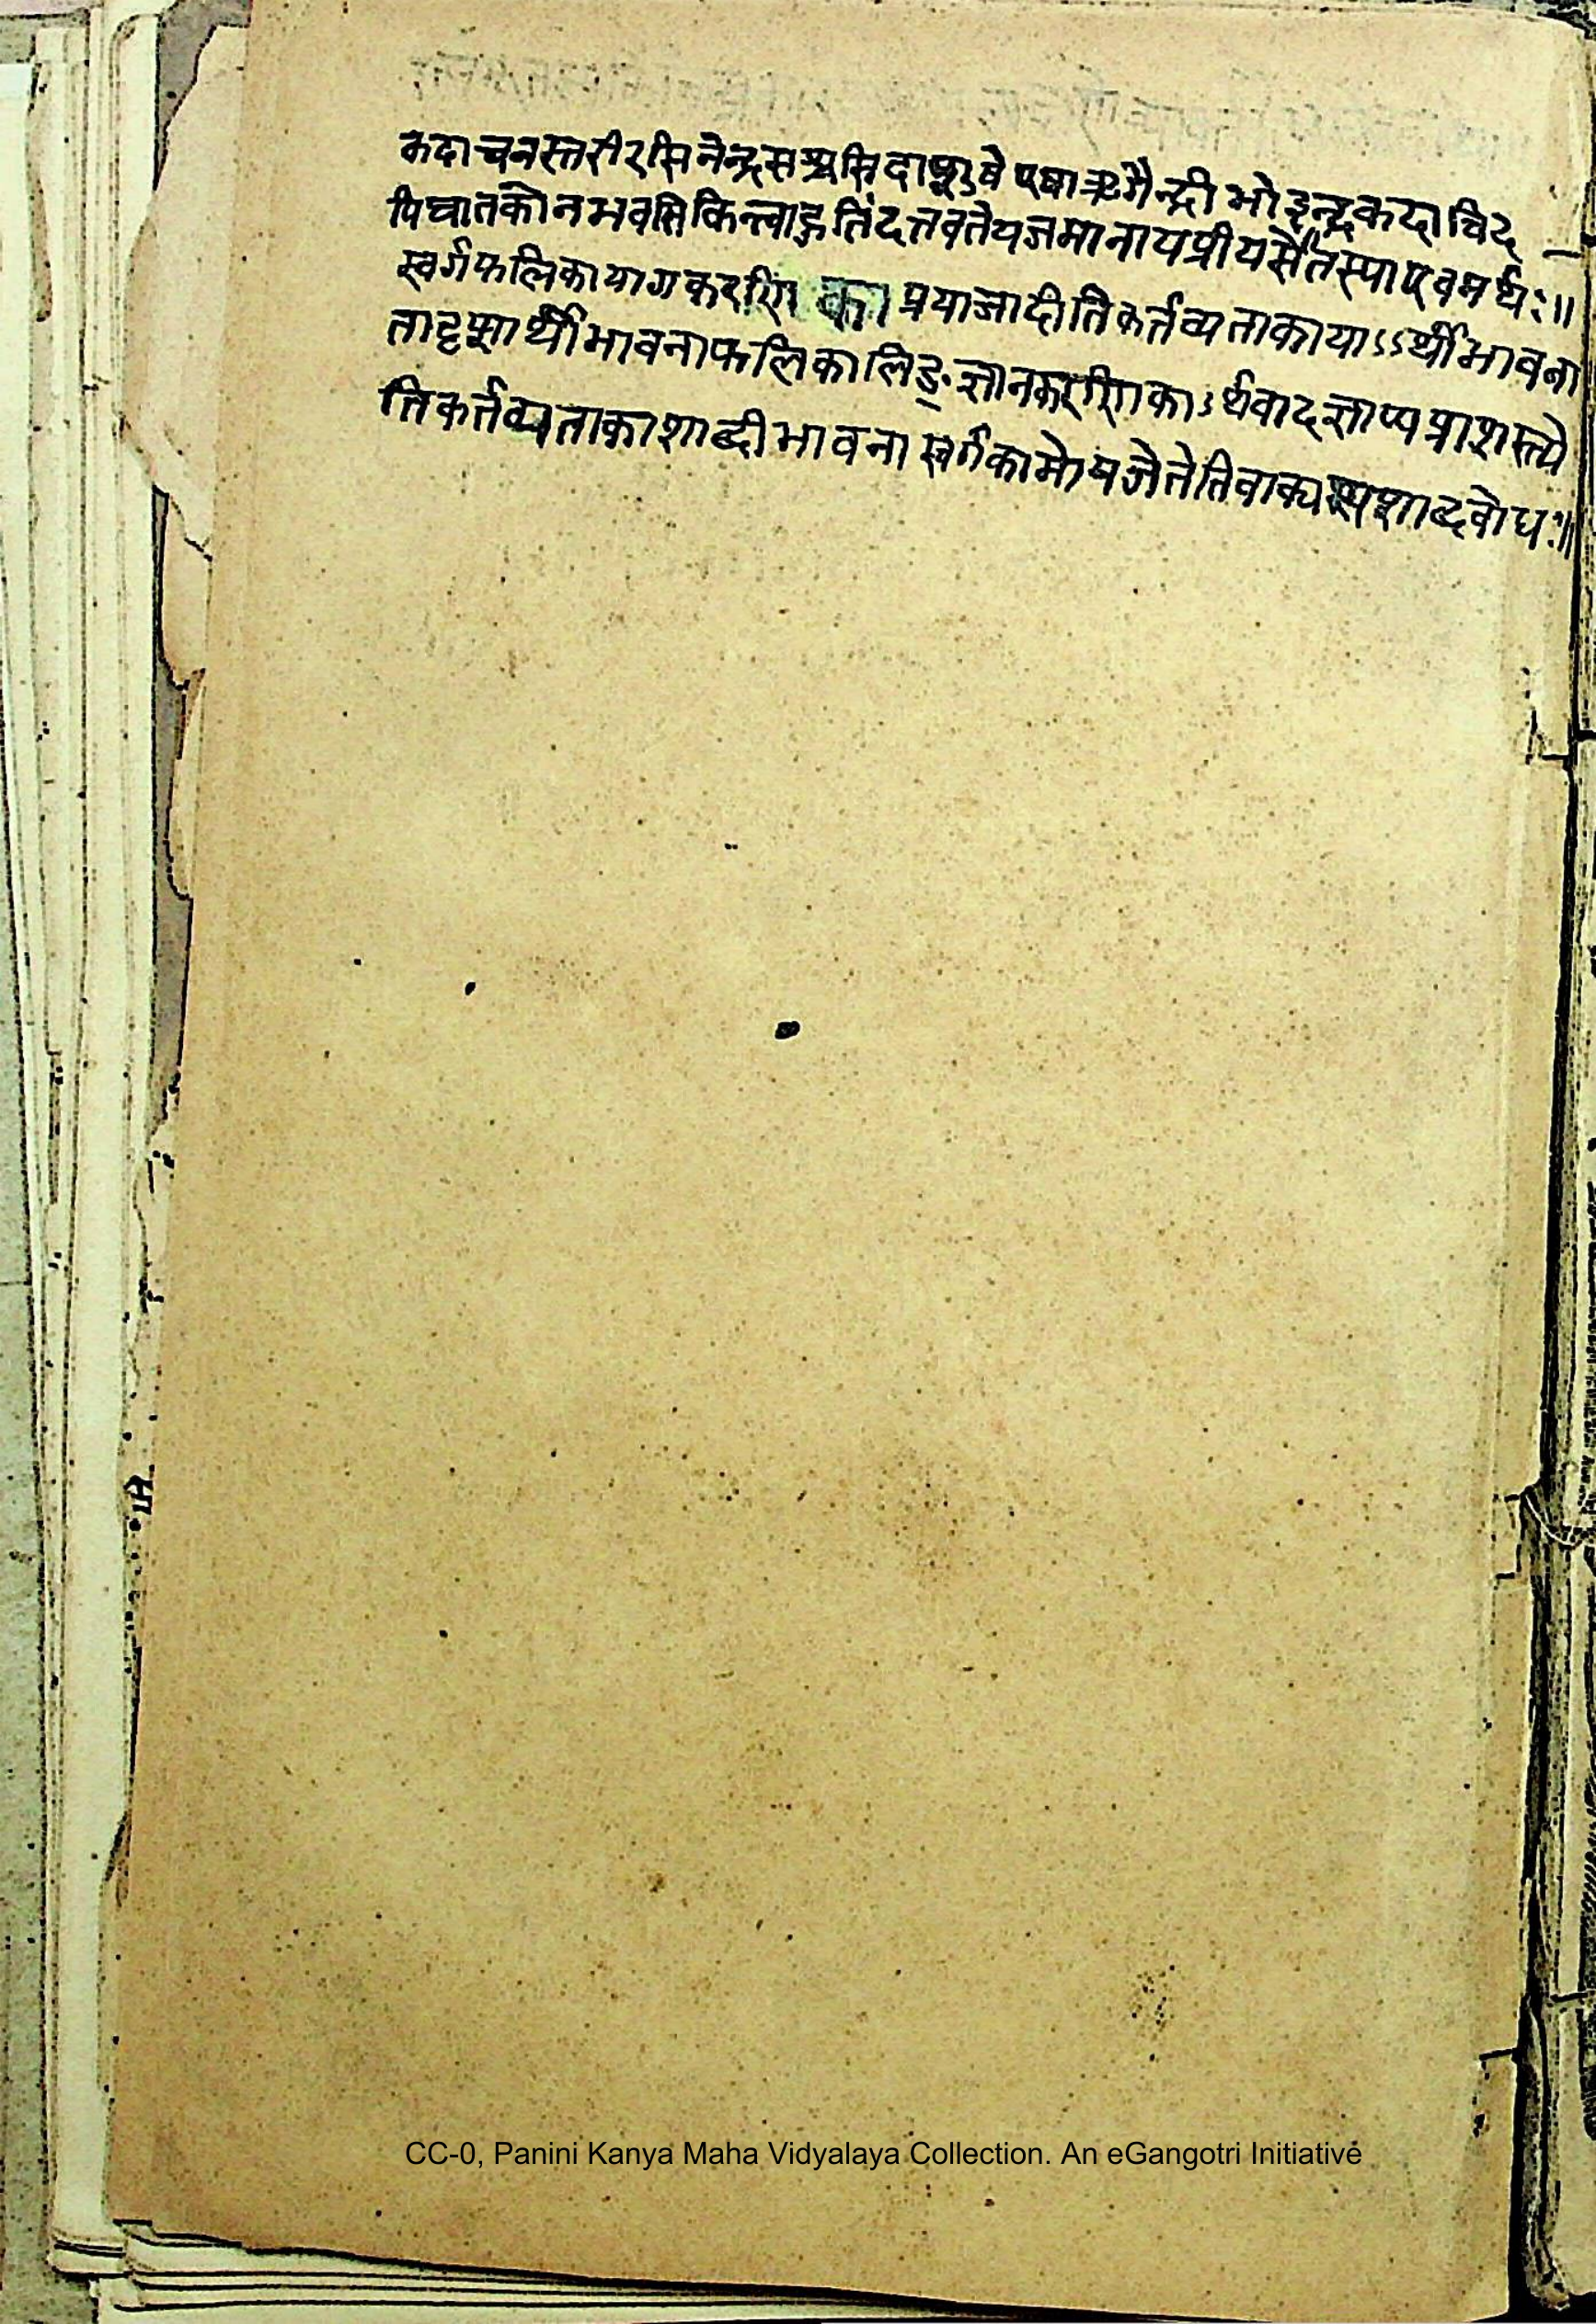 कदाचनस्तरीरसिनेन्द्रसश्चसिदाशुषे एषाऋगैन्द्री भो इन्द्र कदाचिद
पिघातको न भवसि किन्त्वाहुतिंदत्तवतेयजमानायप्रीयसैतस्याएवमर्थः॥
स्वर्गफलिकायागकरणिका प्रयाजादीतिकर्तव्यताकायाऽऽर्थीभावना
तादृशार्थीभावनाफलिकालिङ्ज्ञानकरणिकाऽर्थवादज्ञाप्यप्राशस्त्ये
तिकर्त्तव्यताकाशाब्दीभावना स्वर्गकामोयजेतेतिवाक्यस्यशाब्दबोधः॥
CC-0, Panini Kanya Maha Vidyalaya Collection. An eGangotri Initiative